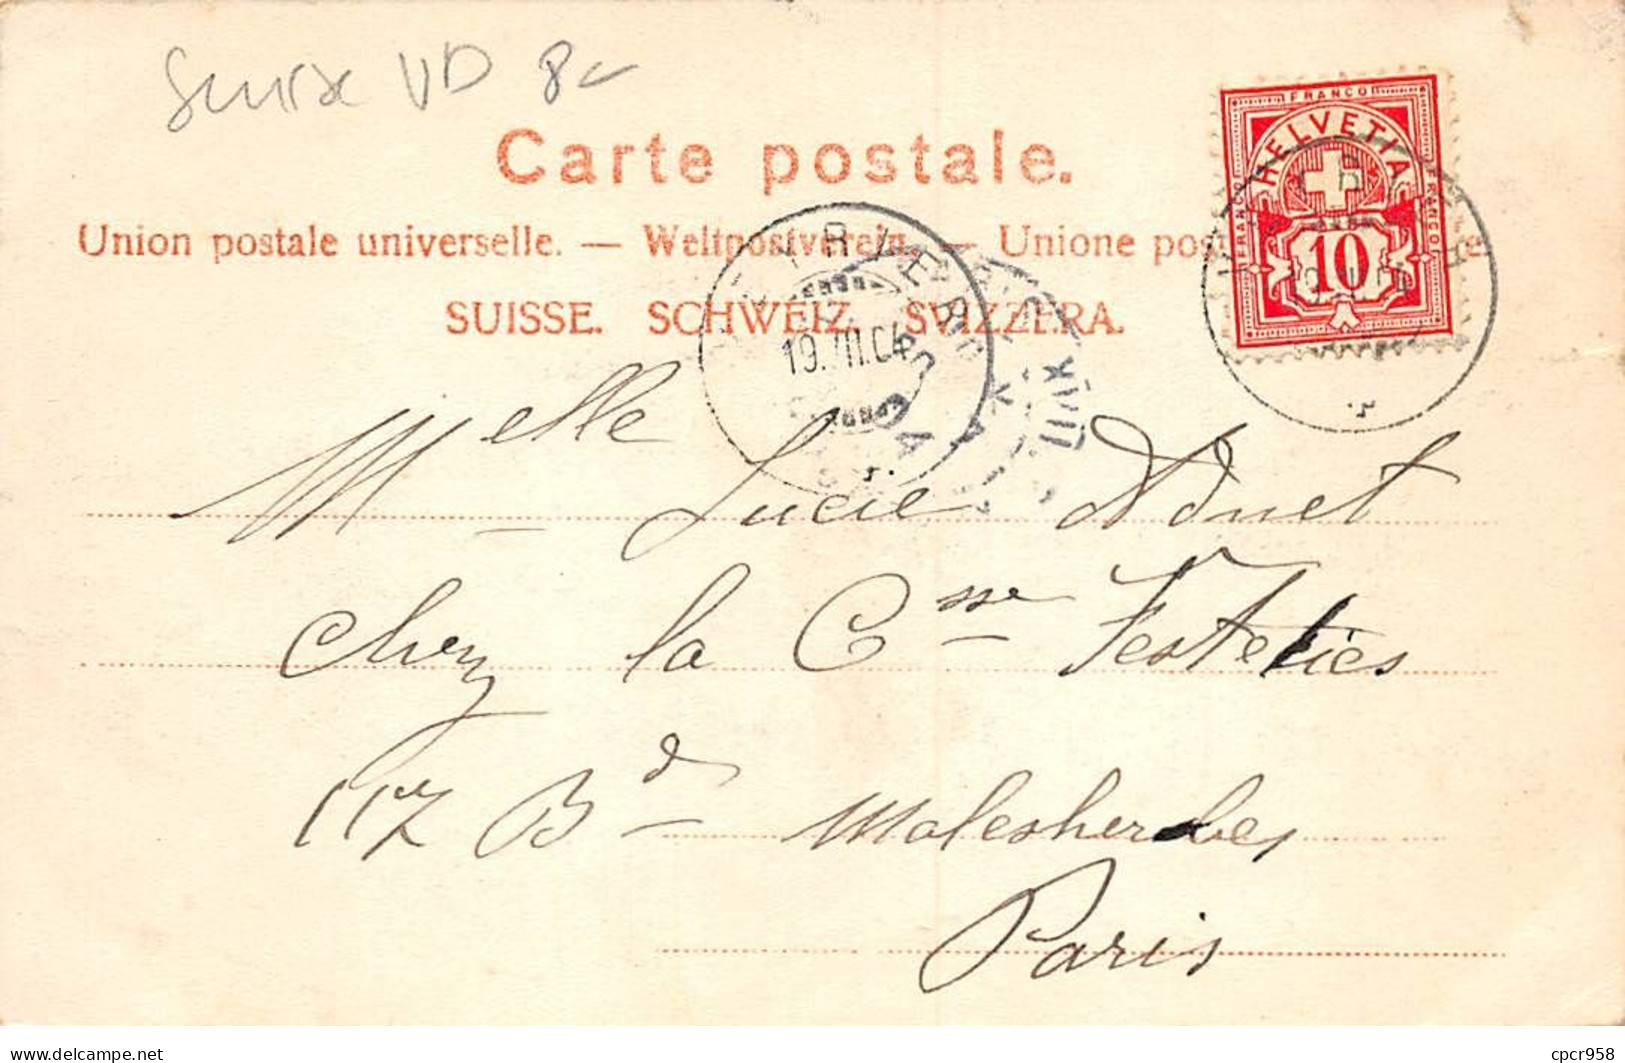 Suisse VD 8-
Carte postale.
Union postale universelle. — Weltpostverein. — Unione
SUISSE. SCHWEIZ. SVIZZERA.
FRANCO
HELVETIA
FRANCO
FRANCO
10
19.VII.04
04
XVII
Melle Lucie Aduet
chez la Csse Festetics
117 Bd Malesherbes
Paris
delcampe.net
cpcr958